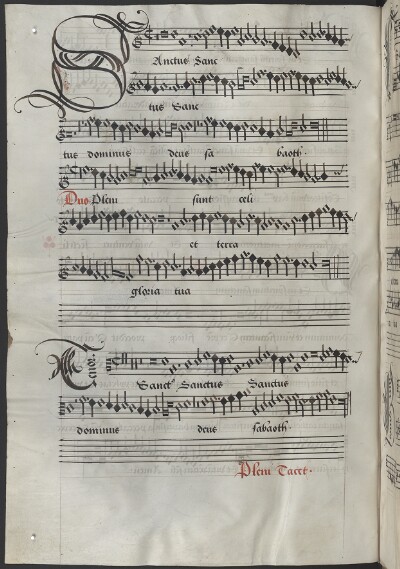 Sanctus Sanc
tus Sanc
tus dominus deus sa baoth
Duo Pleni sunt celi
et terra
gloria tua
Tenor
Sanct⁹ Sanctus Sanctus
dominus deus sabaoth.
Pleni Tacet.